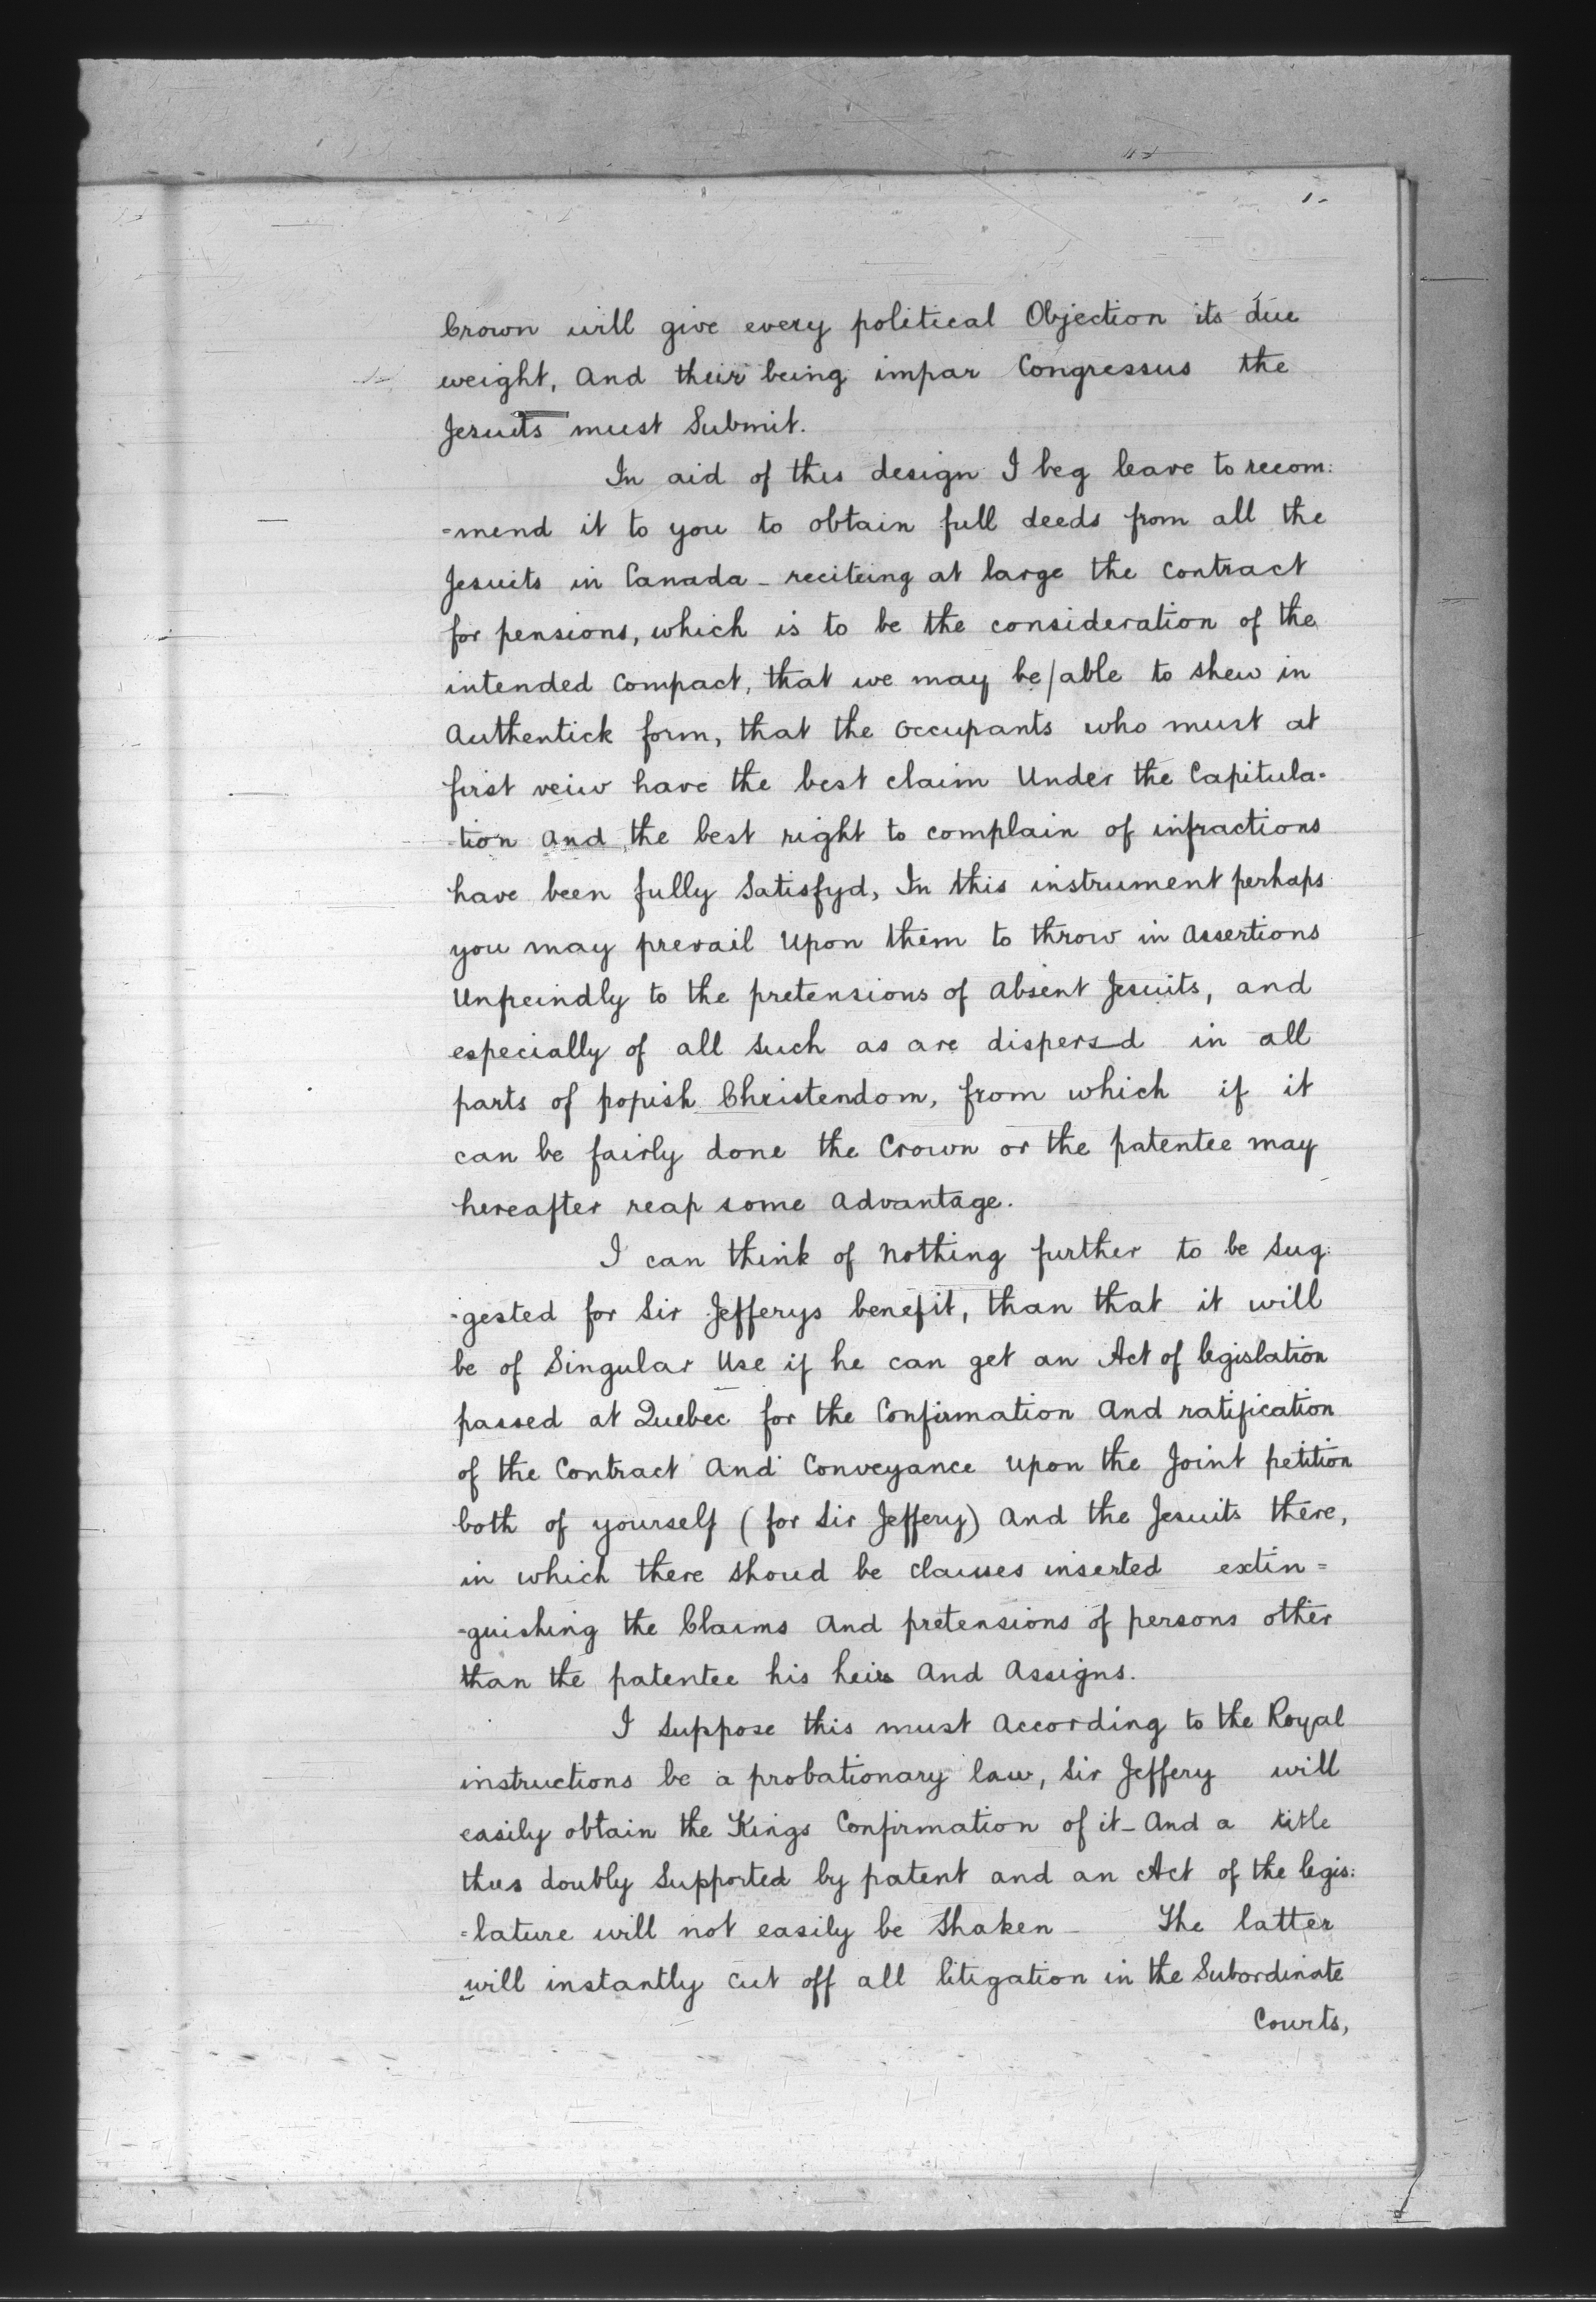 Crown will give every political Objection its due
weight, And their being impar Congressus the
Jesuits must Submit.
In aid of this design I beg leave to recom:
=mend it to you to obtain full deeds from all the
Jesuits in Canada - reciteing at large the Contract
for pensions, which is to be the consideration of the
intended Compact, that we may be/able to shew in
Authentick form, that the Occupants who must at
first veiw have the best claim Under the Capitula=
-tion And the best right to complain of infractions
have been fully Satisfyd, In this instrument perhaps
you may prevail Upon them to throw in Assertions
Unfreindly to the pretensions of Absent Jesuits, and
especially of all Such as are dispersd in all
parts of popish Christendom, from which if it
can be fairly done the Crown or the patentee may
hereafter reap some Advantage.
I can think of Nothing further to be Sug:
-gested for Sir Jefferys benefit, than that it will
be of Singular Use if he can get an Act of legislation
passed at Quebec for the Confirmation And ratification
of the Contract And Conveyance Upon the Joint petition
both of yourself (for Sir Jeffery) And the Jesuits there,
in which there shoud be Clauses inserted extin=
=guishing the Claims And pretensions of persons other
than the patentee his heirs And Assigns.
I Suppose this must According to the Royal
instructions be a probationary law, Sir Jeffery will
easily obtain the Kings Confirmation of it - And a title
thus doubly Supported by patent and an Act of the legis:
=lature will not easily be Shaken - The latter
will instantly Cut off all litigation in the Subordinate
Courts,